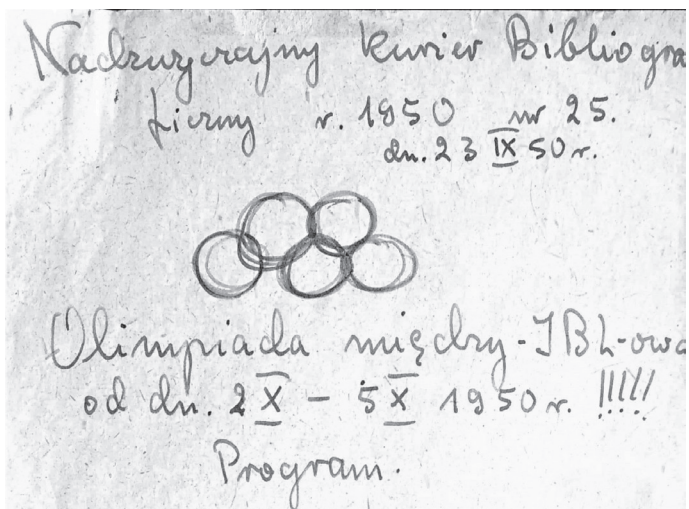 Nadzwyczajny Kurier Bibliogra
ficzny r. 1950 nr 25.
dn. 23 IX 50 r.
Olimpiada między-IBL-owa
od dn. 2 X – 5 X 1950 r. !!!!!
Program.